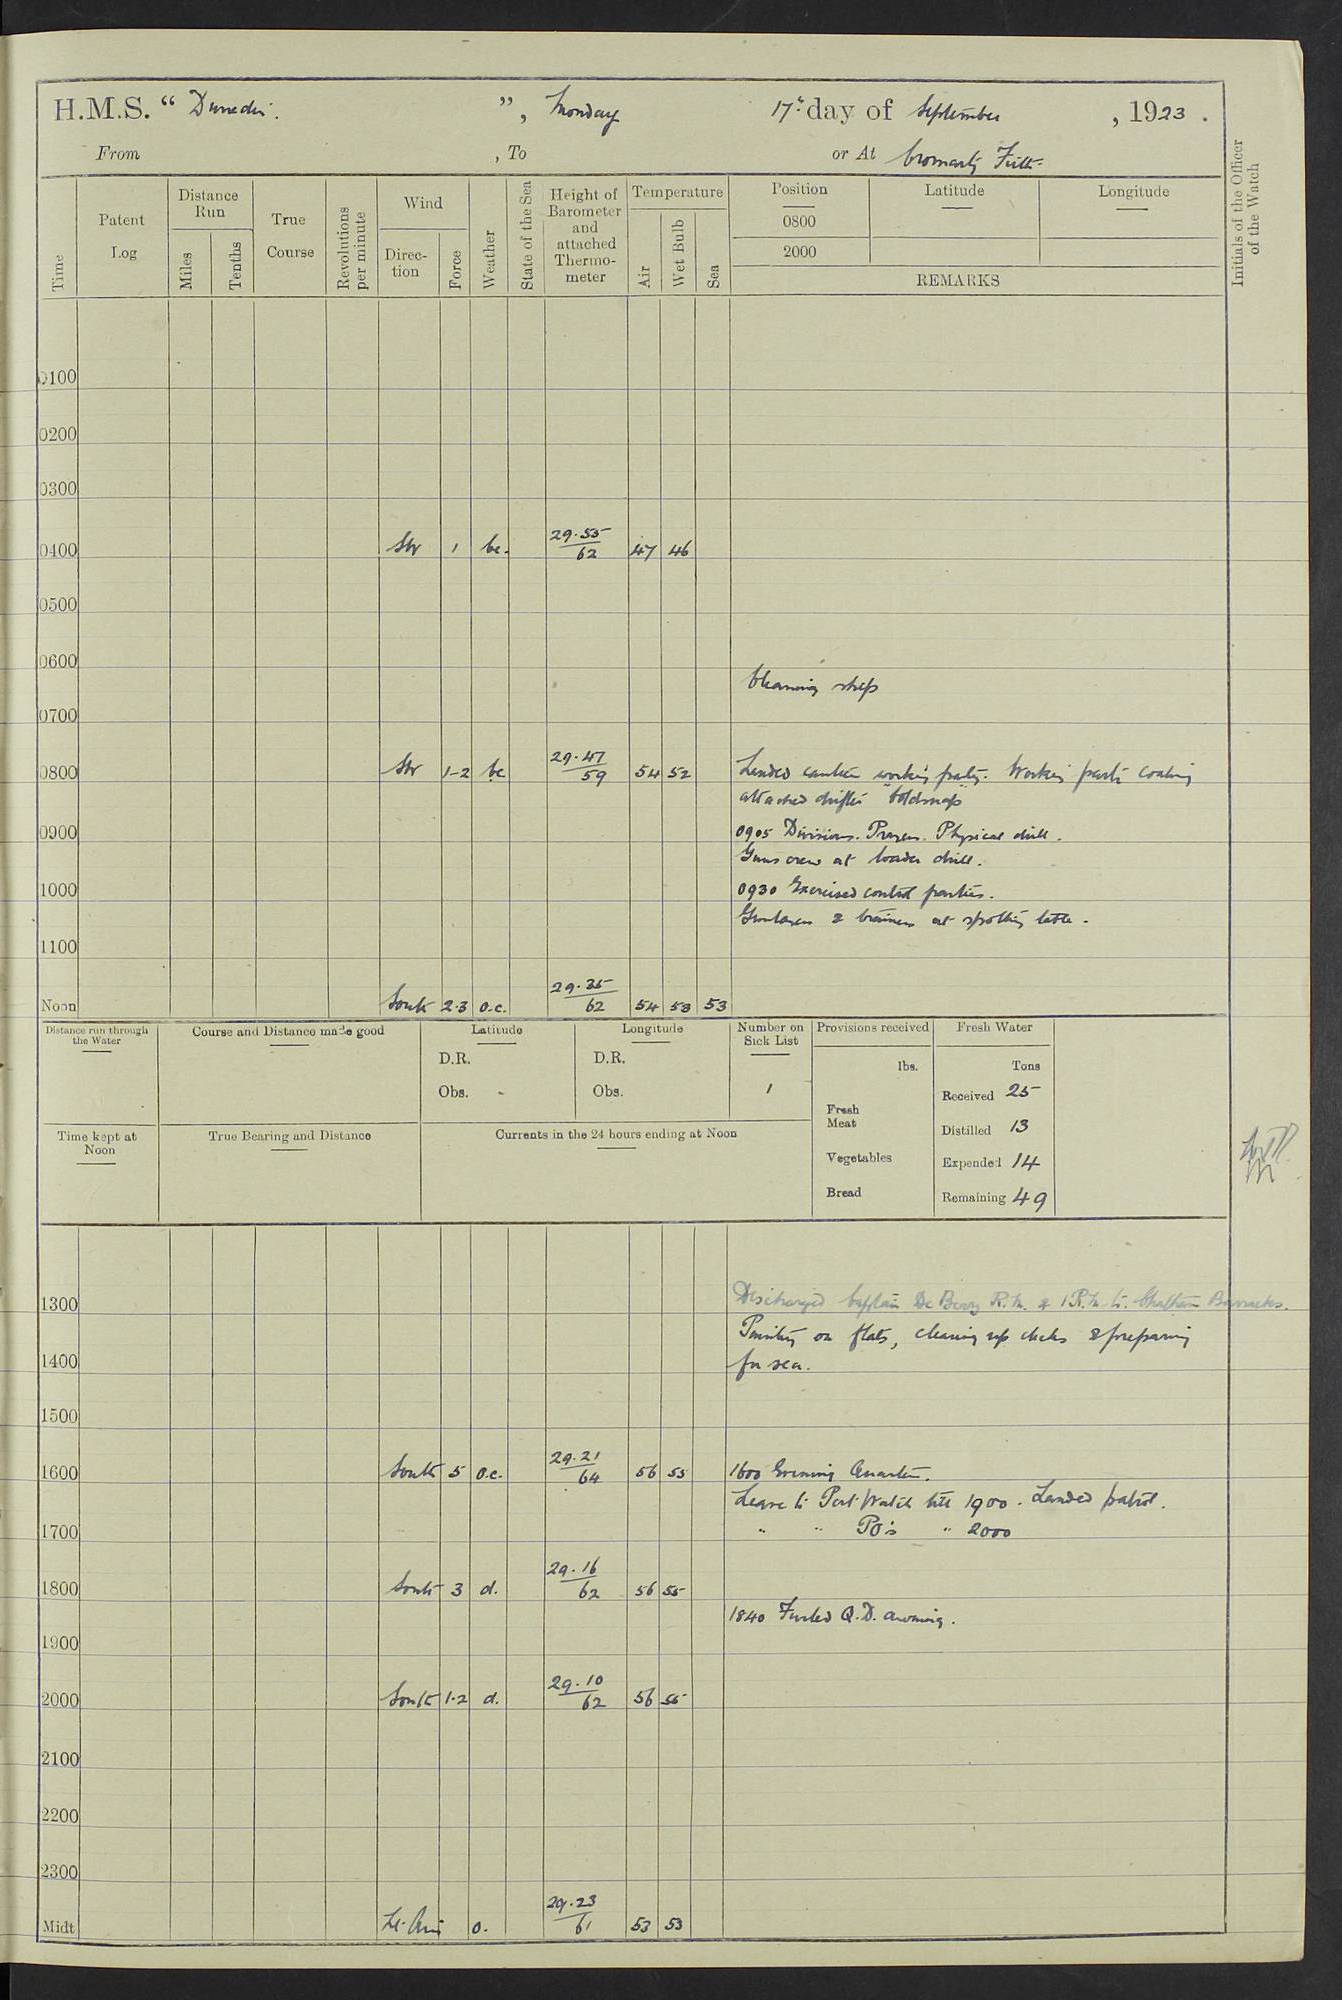 H.M.S. “ Dunedin. ”, Monday 17th day of September, 1923.
From , To or At Cromarty Firth.
Time
Patent Log
Distance Run
Miles
Tenths
True Course
Revolutions per minute
Wind
Direction
Force
Weather
State of the Sea
Height of Barometer and attached Thermometer
Temperature
Air
Wet Bulb
Sea
Position
Latitude
Longitude
0800
2000
REMARKS
Initials of the Officer of the Watch
0100
0200
0300
0400 SW 1 bc. 29.55/62 47 46
0500
0600
Cleaning ship
0700
0800 SW 1-2 bc 29.47/59 54 52 Landed canteen working party. Working party coaling
attached drifter "Coldsnap"
0900 0905 Divisions. Prayers. Physical drill.
Guns crew at loader drill.
1000 0930 Exercised control parties.
Gunlayers & trainers at spotting table.
1100
Noon South 2.3 o.c. 29.35/62 54 53 53
Distance run through the Water
Course and Distance made good
Latitude
D.R.
Obs. -
Longitude
D.R.
Obs.
Number on Sick List
1
Provisions received
lbs.
Fresh Meat
Vegetables
Bread
Fresh Water
Tons
Received 25
Distilled 13
Expended 14
Remaining 49
Time kept at Noon
True Bearing and Distance
Currents in the 24 hours ending at Noon
1300 Discharged Captain De Berry R.M. & 1 R.M. to Chatham Barracks.
Painting on flats, clearing up decks & preparing
1400 for sea.
1500
1600 South 5 o.c. 29.21/64 56 55 1600 Evening Quarters.
Leave to Port Watch till 1900. Landed patrol.
1700 " " PO's " 2000
1800 South 3 d. 29.16/62 56 55
1840 Furled Q.D. awning.
1900
2000 South 1.2 d. 29.10/62 56 55
2100
2200
2300
Midt Lt. Airs o. 29.23/61 53 53